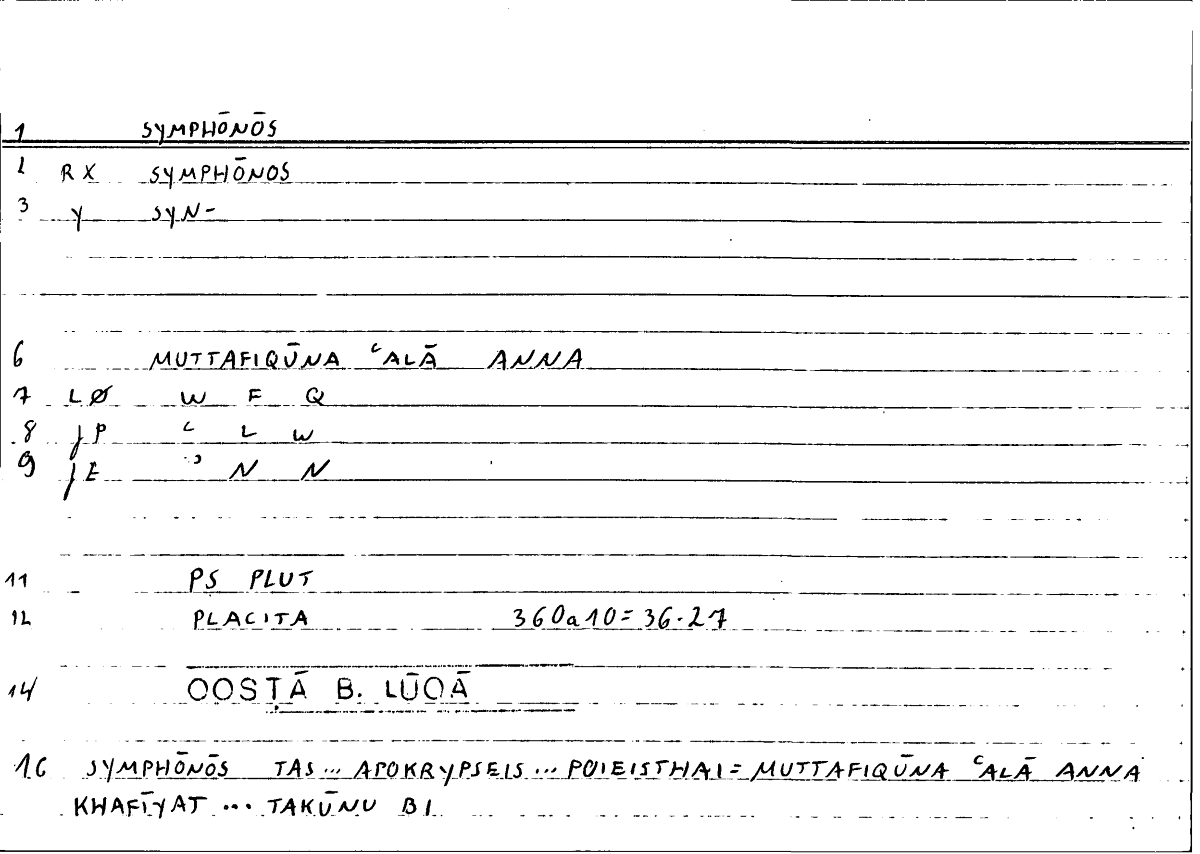 1 SYMPHŌNŌS
2 RX SYMPHŌNOS
3 Y SYN-
6 MUTTAFIQŪNA ʿALĀ ANNA
7 LØ W F Q
8 JP ʿ L W
9 JE ʾ N N
11 PS PLUT
12 PLACITA 360a10=36.27
14 QOSṬĀ B. LŪQĀ
16 SYMPHŌNŌS TAS... APOKRYPSEIS... POIEISTHAI= MUTTAFIQŪNA ʿALĀ ANNA
KHAFĪYAT ... TAKŪNU BI